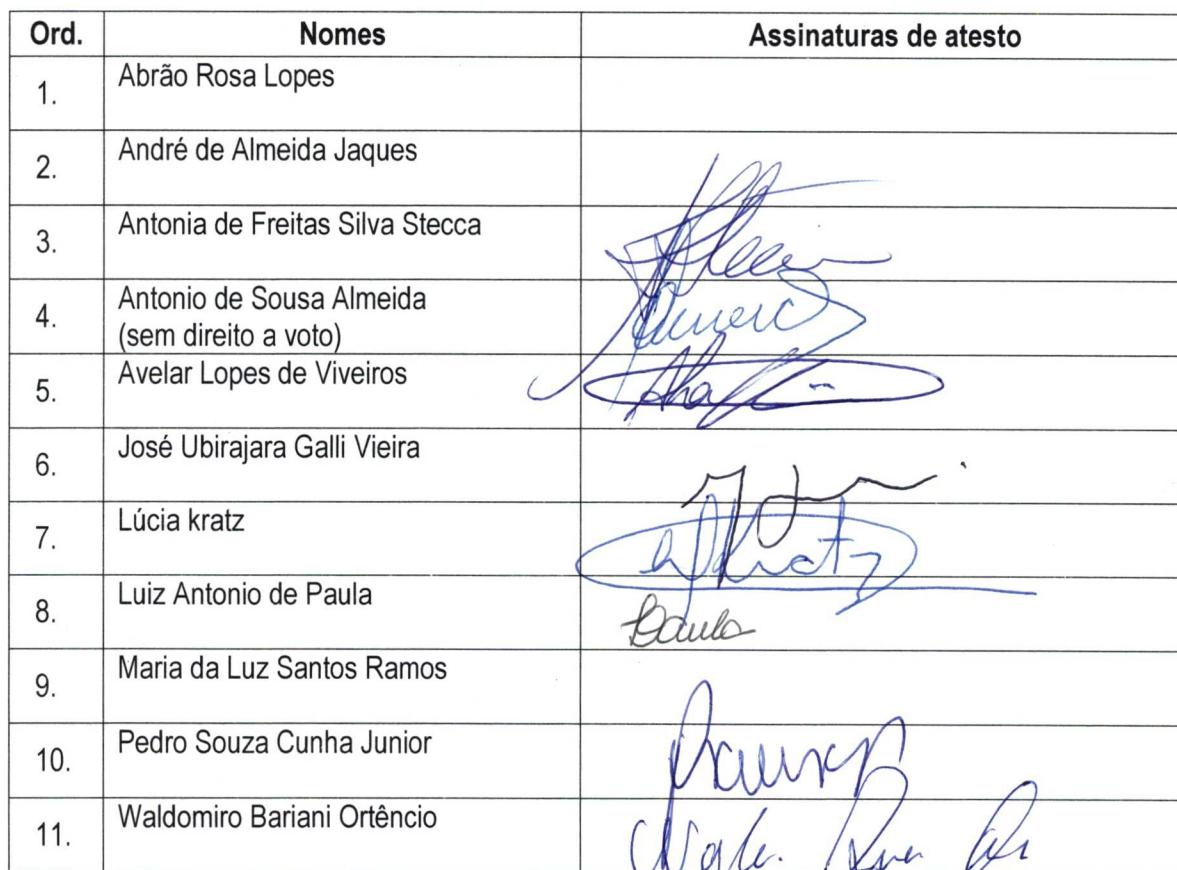 Ord. Nomes Assinaturas de atesto
1. Abrão Rosa Lopes
2. André de Almeida Jaques
3. Antonia de Freitas Silva Stecca
4. Antonio de Sousa Almeida
(sem direito a voto)
5. Avelar Lopes de Viveiros
6. José Ubirajara Galli Vieira
7. Lúcia kratz
8. Luiz Antonio de Paula
9. Maria da Luz Santos Ramos
10. Pedro Souza Cunha Junior
11. Waldomiro Bariani Ortêncio